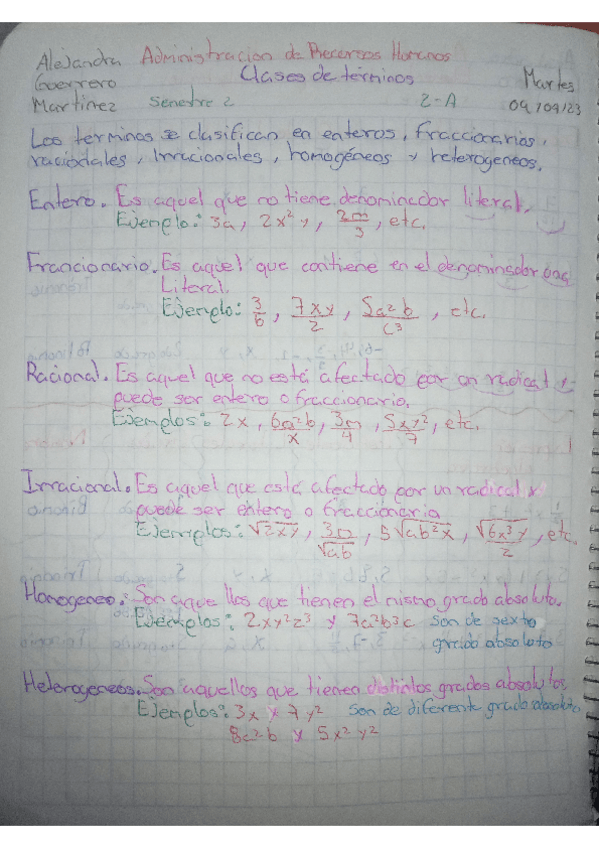 Alejandra Administracion de Recursos Humanos
Guerrero Clases de términos Martes
Martinez semetre 2 2-A 09/09/23
Los terminos se clasifican en enteros, fraccionarios,
raciodales, irracionales, homogéneos y heterogeneos.
Entero. Es aquel que no tiene denominador literal.
Ejemplo: 3a, 2x²y, 2m/3, etc.
Francionario. Es aquel que contiene en el denominador una
Literal.
Ejemplo: 3/6, 7xy/2, 5a²b/c³, etc.
Racional. Es aquel que no está afectado por un radical y
puede ser entero o fraccionario.
Ejemplos: 2x, 6a²b/x, 3m/4, 5xy²/7, etc.
Irracional. Es aquel que está afectado por un radical y
puede ser entero o fraccionario
Ejemplos: √2xy, 3m/√ab, 5√ab²x, √6x³y/2, etc.
Homogeneo. Son aquellos que tienen el mismo grado absoluto.
Ejemplos: 2xy²z³ y 7a²b³c son de sexto
grado absoluto
Heterogeneos. Son aquellos que tienen distintos grados absolutos
Ejemplos: 3x y 7y² son de diferente grado absoluto.
8a²b y 5x²y²